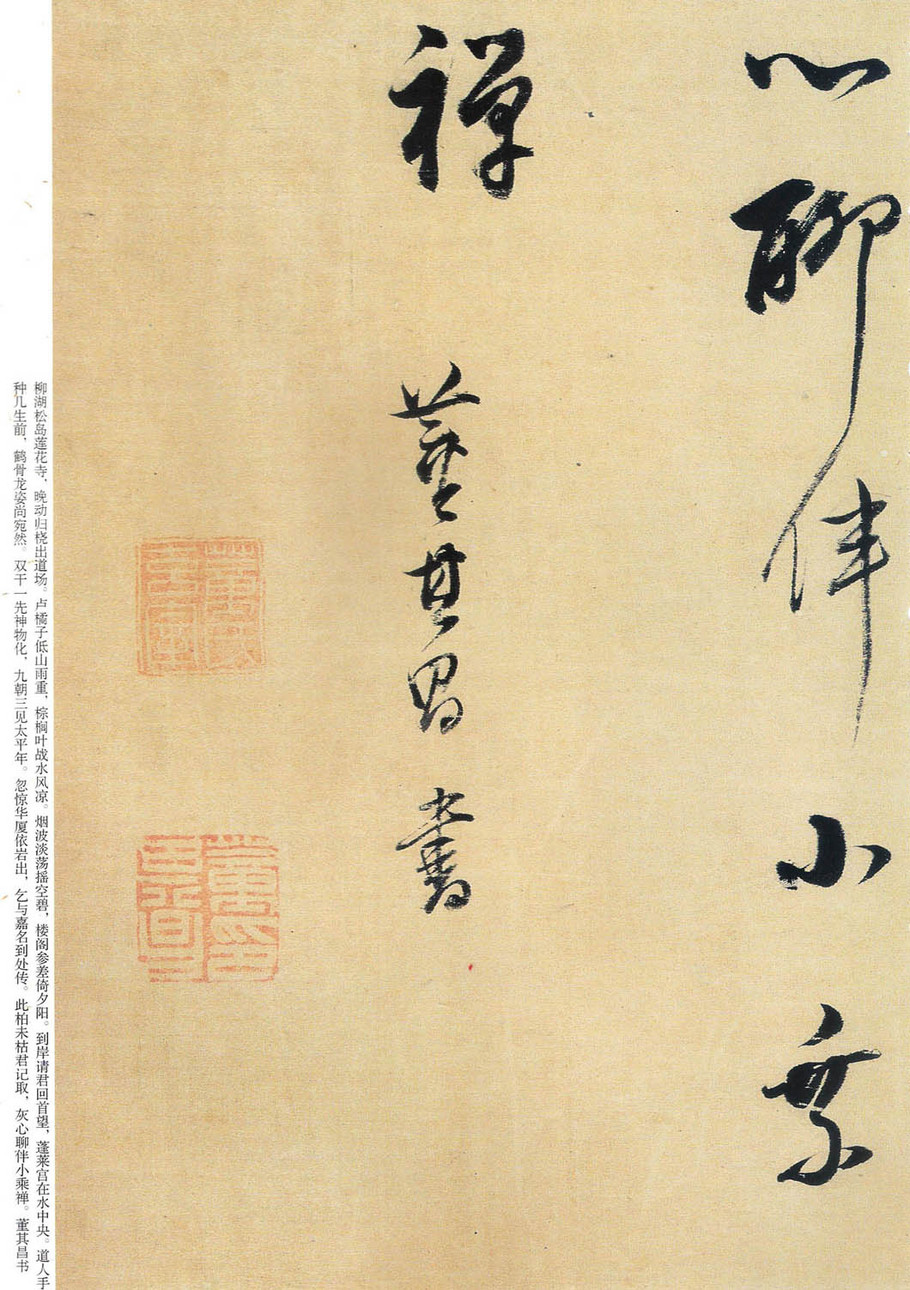 心聊伴小乘
禅
董其昌書
柳湖松岛莲花寺，晚动归桡出道场。卢橘子低山雨重，棕榈叶战水风凉。烟波淡荡摇空碧，楼阁参差倚夕阳。到岸请君回首望，蓬莱宫在水中央。道人手
种几生前，鹤骨龙姿尚宛然。双干一先神物化，九朝三见太平年。忽惊华厦依岩出，乞与嘉名到处传。此柏未枯君记取，灰心聊伴小乘禅。董其昌书